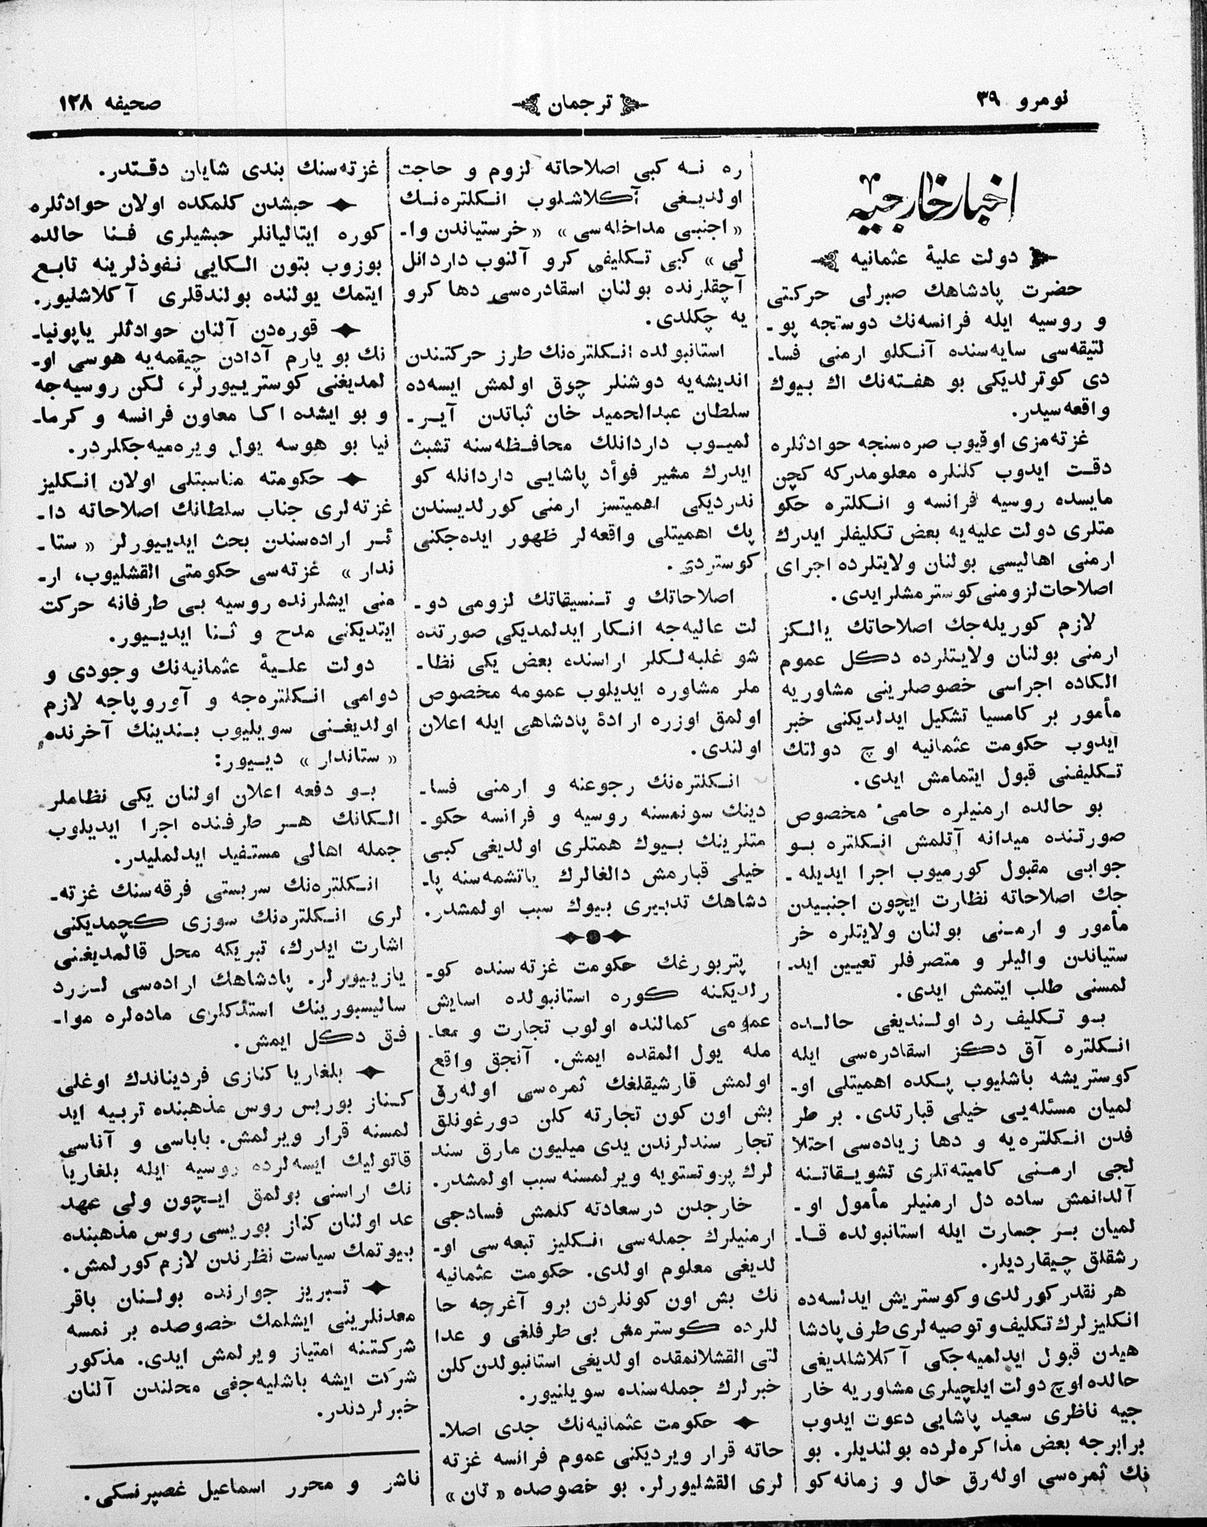 نومرو ٣٩
ترجمان
صحیفه ١٢٨
اخبار خارجیه
دولت علیهٔ عثمانیه
حضرت پادشاهك صبرلی حرکتی
و روسیه ایله فرانسه‌نك دوستجه پو-
لتیقه‌سی سایه‌سنده آنکلو ارمنی فسا-
دی کوترلدیکی بو هفته‌نك اك بیوك
واقعه‌سیدر.
غزته‌مزی اوقیوب صره‌سنجه حوادثلره
دقت ایدوب کلنلره معلومدرکه کچن
مایسده روسیه فرانسه و انکلتره حکو
متلری دولت علیه‌یه بعض تکلیفلر ایدرك
ارمنی اهالیسی بولنان ولایتلرده اجرای
اصلاحات لزومنی کوسترمشلر ایدی.
لازم کوریله‌جك اصلاحاتك یالکز
ارمنی بولنان ولایتلرده دکل عموم
الکاده اجراسی خصوصلرینی مشاوریه
مأمور بر کامسیا تشکیل ایدلدیکنی خبر
ایدوب حکومت عثمانیه اوچ دولتك
تکلیفنی قبول ایتمامش ایدی.
بو حالده ارمنیلره حامیٔ مخصوص
صورتنده میدانه آتلمش انکلتره بو
جوابی مقبول کورمیوب اجرا ایدیله-
جك اصلاحاته نظارت ایچون اجنبیدن
مأمور و ارمنی بولنان ولایتلره خر
ستیاندن والیلر و متصرفلر تعیین اید-
لمسنی طلب ایتمش ایدی.
بو تکلیف رد اولندیغی حالده
انکلتره آق دکز اسقادره‌سی ایله
کوستریشه باشلیوب پکده اهمیتلی او-
لمیان مسئله‌یی خیلی قبارتدی. بر طر
فدن انکلتره‌یه و دها زیاده‌سی احتلا
لجی ارمنی کامیته‌تلری تشویقاتنه
آلدانمش ساده دل ارمنیلر مأمول او-
لمیان بر جسارت ایله استانبولده قا-
رشقلق چیقاردیلر.
هر نقدر کورلدی و کوستریش ایدلسه‌ده
انکلیزلرك تکلیف و توصیه‌لری طرف پادشا
هیدن قبول ایدلمیه‌جکی آکلاشلدیغی
حالده اوچ دولت ایلچیلری مشاوریه خار
جیه ناظری سعید پاشایی دعوت ایدوب
برابرجه بعض مذاکره‌لرده بولندیلر. بو
نك ثمره‌سی اوله‌رق حال و زمانه کو
ره نه کبی اصلاحاته لزوم و حاجت
اولدیغی آکلاشلوب انکلتره‌نك
«اجنبی مداخله‌سی» «خرستیاندن وا-
لی» کبی تکلیفی کرو آلنوب داردانل
آچقلرنده بولنان اسقادره‌سی دها کرو
یه چکلدی.
استانبولده انکلتره‌نك طرز حرکتندن
اندیشه‌یه دوشنلر چوق اولمش ایسه‌ده
سلطان عبدالحمید خان ثباتدن آیر-
لمیوب داردانلك محافظه‌سنه تشبث
ایدرك مشیر فوأد پاشایی داردانله کو
ندردیکی اهمیتسز ارمنی کورلدیسندن
پك اهمیتلی واقعه‌لر ظهور ایده‌جکنی
کوستردی.
اصلاحاتك و تنسیقاتك لزومی دو-
لت عالیه‌جه انکار ایدلمدیکی صورتده
شو غلبه‌لکلر اراسنده بعض یکی نظا-
ملر مشاوره ایدیلوب عمومه مخصوص
اولمق اوزره ارادهٔ پادشاهی ایله اعلان
اولندی.
انکلتره‌نك رجوعنه و ارمنی فسا-
دینك سونمسنه روسیه و فرانسه حکو-
متلرینك بیوك همتلری اولدیغی کبی
خیلی قبارمش دالغالرك یاتشمه‌سنه پا-
دشاهك تدبیری بیوك سبب اولمشدر.
پتربورغك حکومت غزته‌سنده کو-
رلدیکنه کوره استانبولده اسایش
عمومی کمالنده اولوب تجارت و معا-
مله یول المقده ایمش. آنجق واقع
اولمش قارشیقلغك ثمره‌سی اوله‌رق
بش اون کون تجارته کلن دورغونلق
تجار سندلرندن یدی میلیون مارق سند
لرك پروتستویه ویرلمسنه سبب اولمشدر.
خارجدن درسعادته کلمش فسادجی
ارمنیلرك جمله‌سی انکلیز تبعه‌سی او-
لدیغی معلوم اولدی. حکومت عثمانیه
نك بش اون کونلردن برو آغرجه حا
للرده کوسترمش بی طرفلغی و عدا
لتی القشلانمقده اولدیغی استانبولدن کلن
خبرلرك جمله‌سنده سویلنیور.
حکومت عثمانیه‌نك جدی اصلا-
حاته قرار ویردیکنی عموم فرانسه غزته
لری القشلیورلر. بو خصوصده «تان»
غزته‌سنك بندی شایان دقتدر.
حبشدن کلمکده اولان حوادثلره
کوره ایتالیانلر حبشیلری فنا حالده
بوزوب بتون الکایی نفوذلرینه تابع
ایتمك یولنده بولندقلری آکلاشلیور.
قوره‌دن آلنان حوادثلر یاپونیا-
نك بو یارم آدادن چیقمه‌یه هوسی او-
لمدیغنی کوستریورلر، لکن روسیه‌جه
و بو ایشده اکا معاون فرانسه و کرما-
نیا بو هوسه یول ویره‌میه‌جکلردر.
حکومته مناسبتلی اولان انکلیز
غزته‌لری جناب سلطانك اصلاحاته دا-
ئر اراده‌سندن بحث ایدیورلر «ستا-
ندار» غزته‌سی حکومتی القشلیوب، ار-
منی ایشلرنده روسیه بی طرفانه حرکت
ایتدیکنی مدح و ثنا ایدیور.
دولت علیهٔ عثمانیه‌نك وجودی و
دوامی انکلتره‌جه و آوروپاجه لازم
اولدیغنی سویلیوب بندینك آخرنده
«ستاندار» دیور:
بو دفعه اعلان اولنان یکی نظاملر
الکانك هر طرفنده اجرا ایدیلوب
جمله اهالی مستفید ایدلملیدر.
انکلتره‌نك سربستی فرقه‌سنك غزته-
لری انکلتره‌نك سوزی کچمدیکنی
اشارت ایدرك، تبریکه محل قالمدیغنی
یازییورلر. پادشاهك اراده‌سی لرد
سالیسبورینك استدکلری ماده‌لره موا-
فق دکل ایمش.
بلغاریا کنازی فردیناندك اوغلی
کناز بوریس روس مذهبنده تربیه اید
لمسنه قرار ویرلمش. باباسی و آناسی
قاتولیك ایسه‌لرده روسیه ایله بلغاریا
نك اراسنی بولمق ایچون ولی عهد
عد اولنان کناز بوریسی روس مذهبنده
بیوتمك سیاست نظرندن لازم کورلمش.
تبریز جوارنده بولنان باقر
معدنلرینی ایشلمك خصوصده بر نمسه
شرکتنه امتیاز ویرلمش ایدی. مذکور
شرکت ایشه باشلیه‌جغی محلندن آلنان
خبرلردندر.
ناشر و محرر اسماعیل غصپرنسکی.